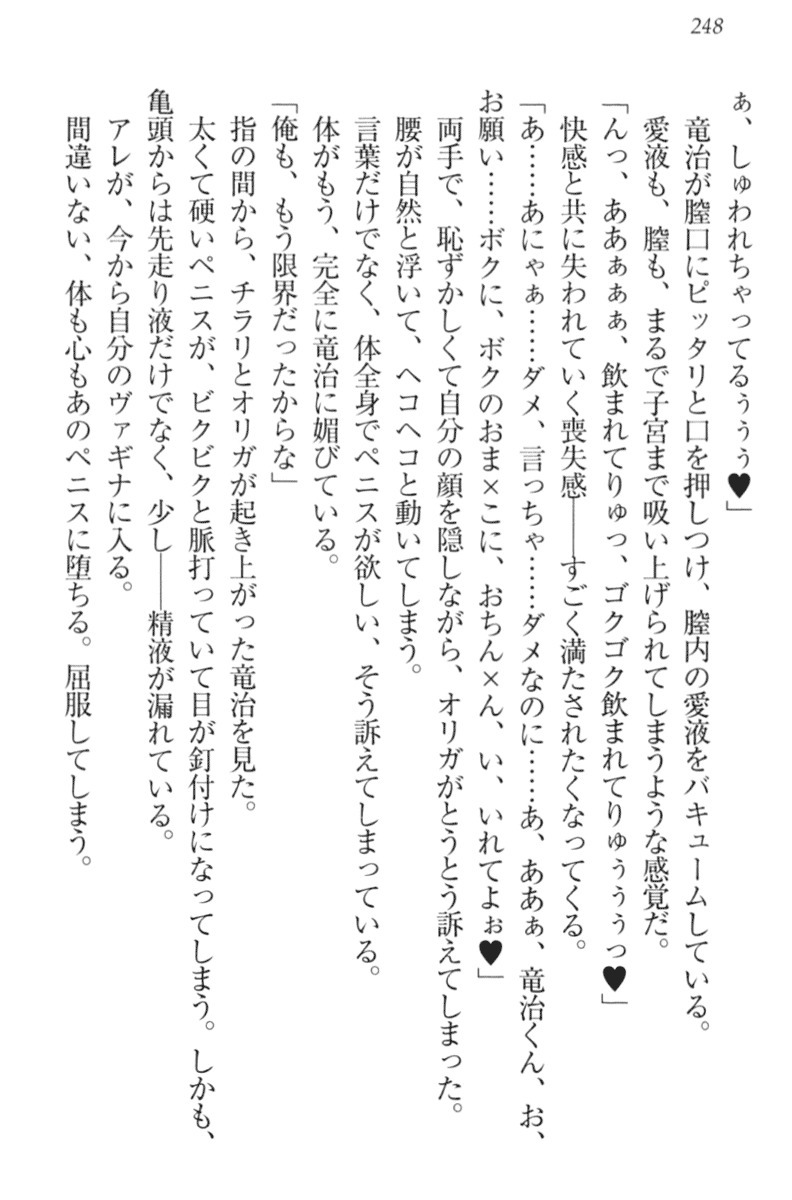 248
ぁ、しゅわれちゃってるぅぅぅ♥」
竜治が膣口にピッタリと口を押しつけ、膣内の愛液をバキュームしている。
愛液も、膣も、まるで子宮まで吸い上げられてしまうような感覚だ。
「んっ、ああぁぁぁ、飲まれてりゅっ、ゴクゴク飲まれてりゅぅぅぅっ♥」
快感と共に失われていく喪失感――すごく満たされたくなってくる。
「あ……あにゃぁ……ダメ、言っちゃ……ダメなのに……あ、ああぁ、竜治くん、お、
お願い……ボクに、ボクのおま×こに、おちん×ん、い、いれてよぉ♥」
両手で、恥ずかしくて自分の顔を隠しながら、オリガがとうとう訴えてしまった。
腰が自然と浮いて、ヘコヘコと動いてしまう。
言葉だけでなく、体全身でペニスが欲しい、そう訴えてしまっている。
体がもう、完全に竜治に媚びている。
「俺も、もう限界だったからな」
指の間から、チラリとオリガが起き上がった竜治を見た。
太くて硬いペニスが、ビクビクと脈打っていて目が釘付けになってしまう。しかも、
亀頭からは先走り液だけでなく、少し――精液が漏れている。
アレが、今から自分のヴァギナに入る。
間違いない、体も心もあのペニスに堕ちる。屈服してしまう。